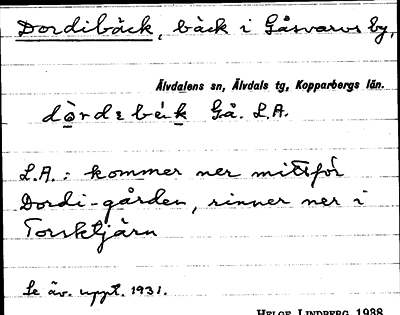 Dordibäck, bäck i Gåsvarvs by,
Älvdalens sn, Älvdals tg, Kopparbergs län.
Gå. L.A.
L.A.: kommer ner mittför
Dordi-gården, rinner ner i
Torsktjärn
Se äv. uppt. 1931.
HELGE LINDBERG 1938